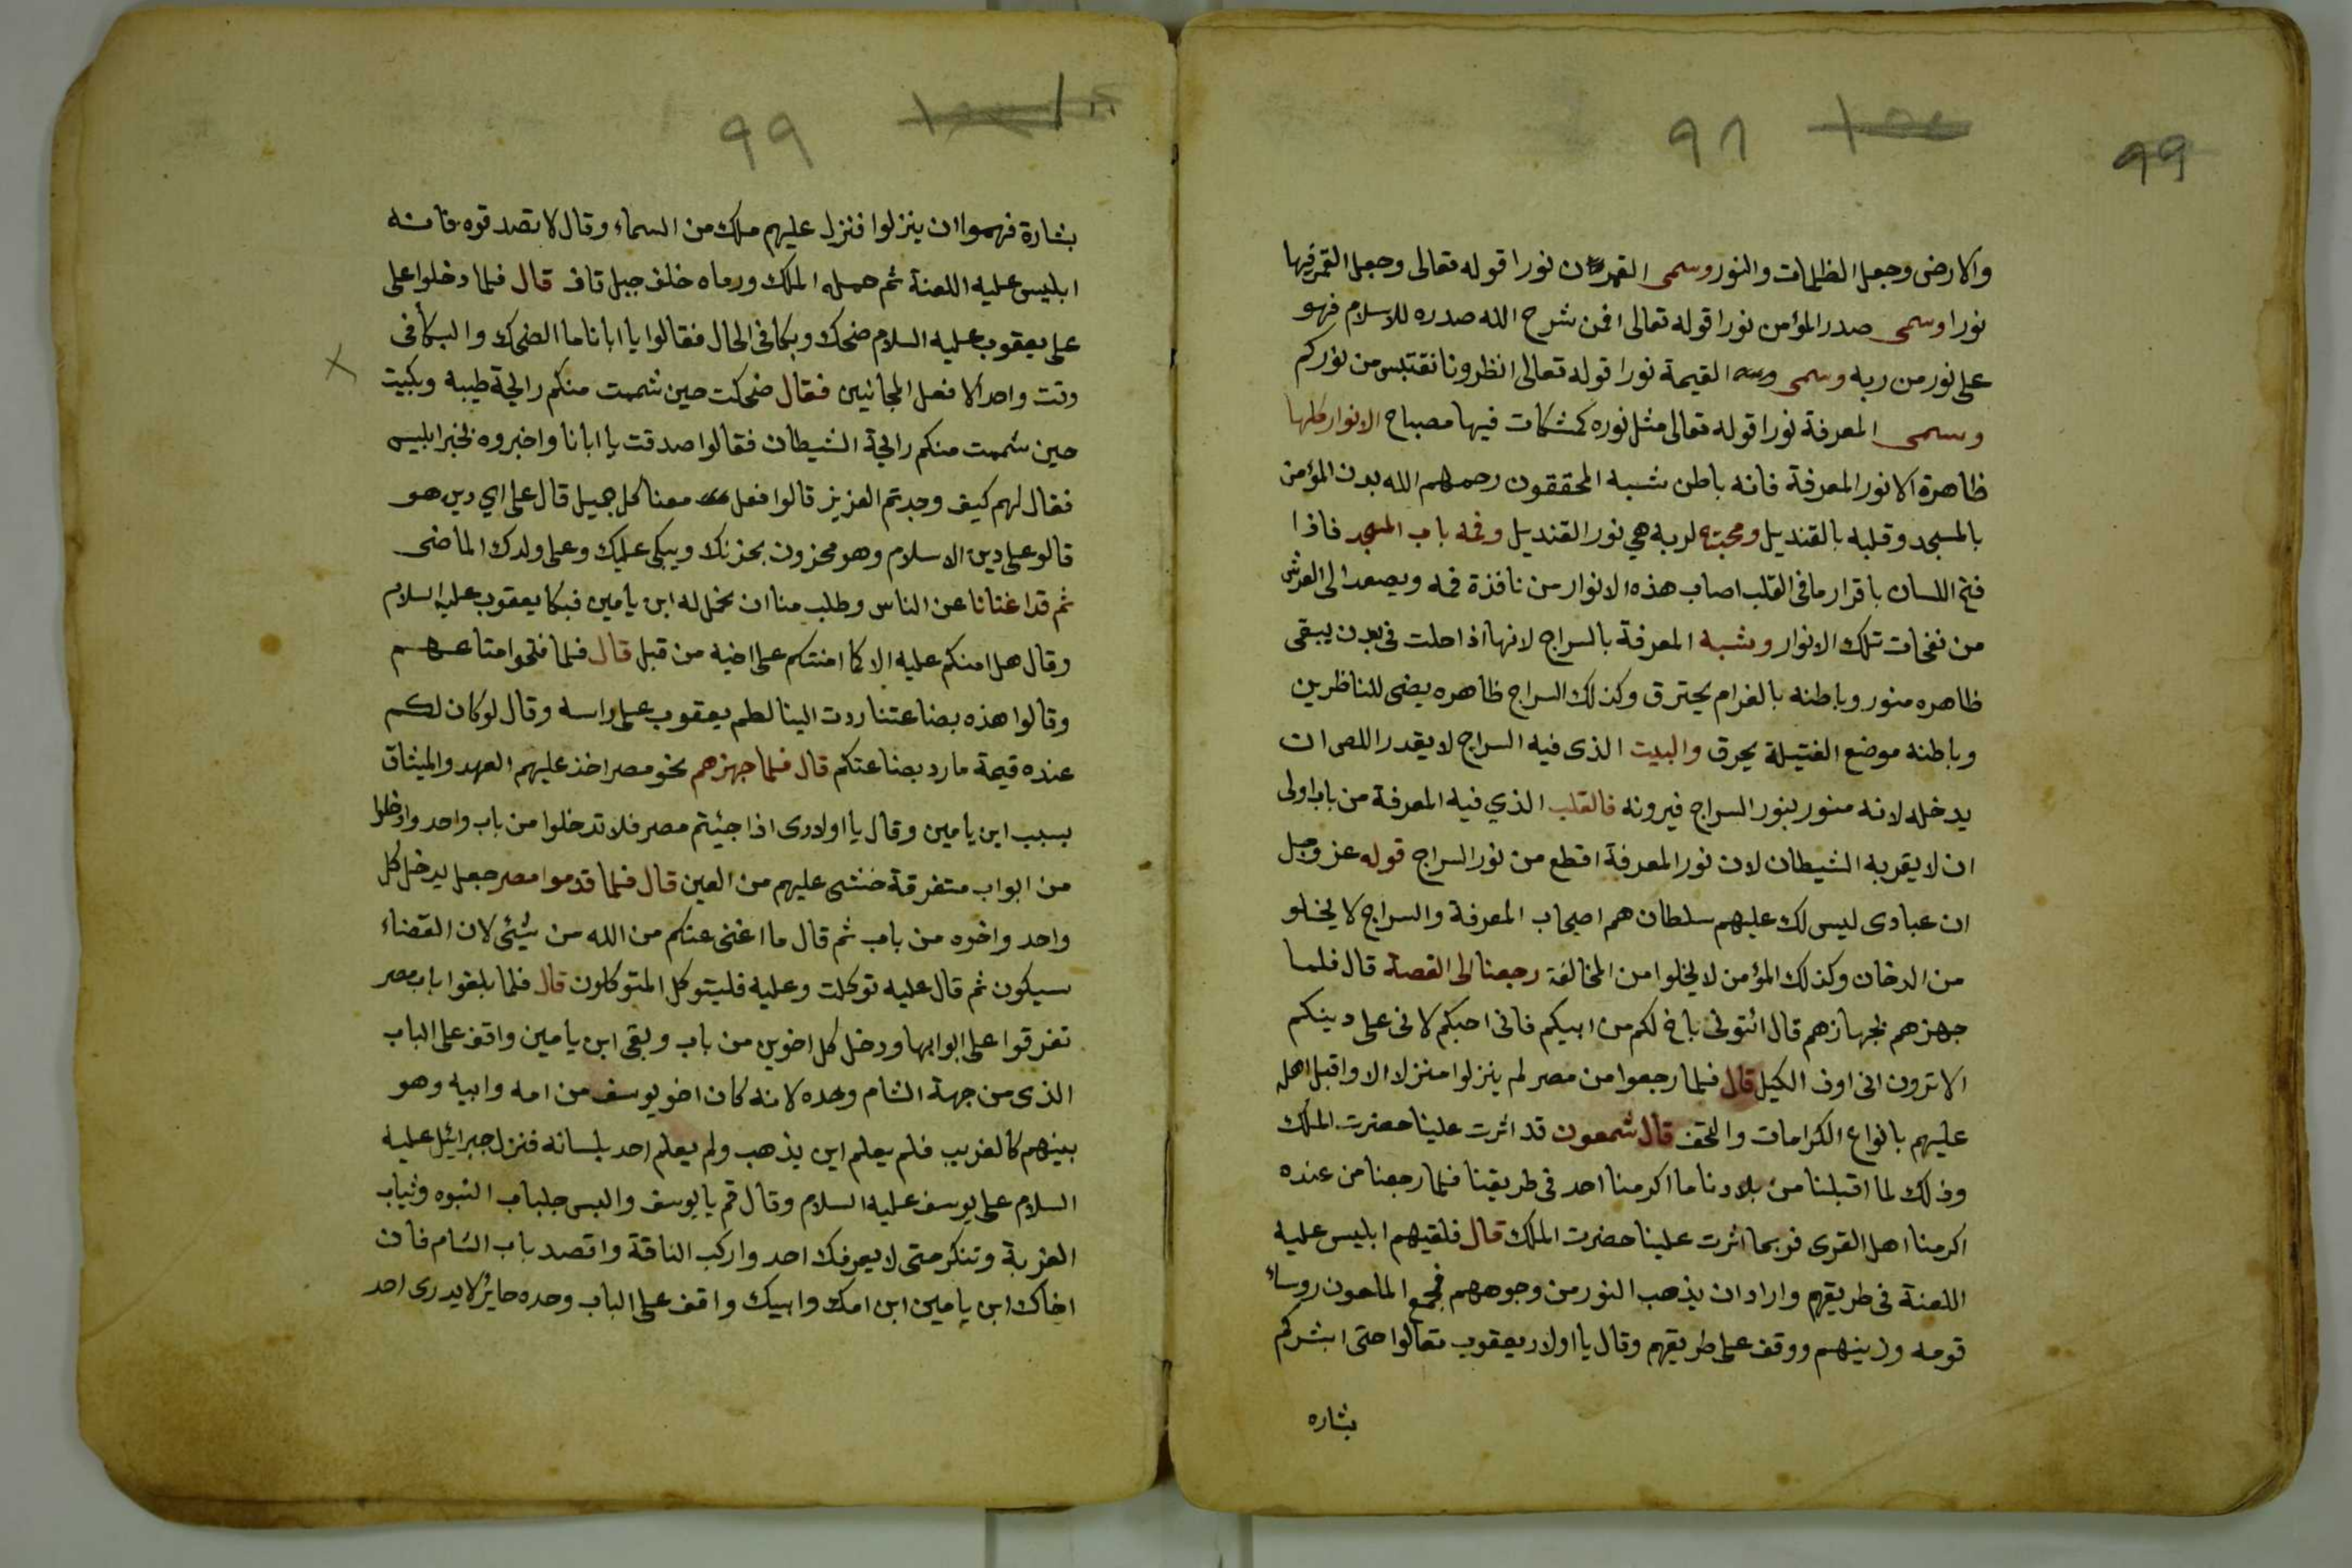 99
٩٨
والارض وجعل الظلمات والنور وسمى القمر نورا قوله تعالى وجعل القمر فيها
نورا وسمى صدر المؤمن نورا قوله تعالى افمن شرح الله صدره للاسلام فهو
على نور من ربه وسمى القيمة نورا قوله تعالى انظرونا نقتبس من نوركم
وسمى المعرفة نورا قوله تعالى مثل نوره كمشكات فيها مصباح الانوار كلها
ظاهرة الا نور المعرفة فانه باطن شبه المحققون رحمهم الله بدن المؤمن
بالمسجد وقلبه بالقنديل ومحبته لربه هي نور القنديل وفمه باب المسجد فاذا
فتح اللسان باقرار ما في القلب اصاب هذه الانوار من نافذة فمه ويصعد الى العرش
من نفخات تلك الانوار وشبه المعرفة بالسراج لانها اذا حلت في بدن يبقى
ظاهره منور وباطنه بالغرام يحترق وكذلك السراج ظاهره يضى للناظرين
وباطنه موضع الفتيلة يحرق والبيت الذى فيه السراج لا يقدر اللص ان
يدخله لانه منور بنور السراج فيرونه فالقلب الذي فيه المعرفة من باب اولى
ان لا يقربه الشيطان لان نور المعرفة اقطع من نور السراج قوله عز وجل
ان عبادى ليس لك عليهم سلطان هم اصحاب المعرفة والسراج لا يخلو
من الدخان وكذلك المؤمن لا يخلوا من المخالفة رجعنا الى القصة قال فلما
جهزهم بجهازهم قال ائتونى باخ لكم من ابيكم فانى احبكم لانى على دينكم
الا ترون انى اوف الكيل قال فلما رجعوا من مصر لم ينزلوا منزلا الا واقبل اهله
عليهم بانواع الكرامات والتحف قال شمعون قد اثرت علينا حضرت الملك
وذلك لما اقبلنا من بلادنا ما اكرمنا احد فى طريقنا فلما رجعنا من عنده
اكرمنا اهل القرى فربما اثرت علينا حضرت الملك قال فلقيهم ابليس عليه
اللعنة فى طريقهم واراد ان يذهب النور من وجوههم فجمع الملعون روساء
قومه وزينهم ووقف على طريقهم وقال يا اولاد يعقوب تعالوا حتى ابشركم
بشاره
٩٩
بشارة فهموا ان ينزلوا فنزل عليهم ملك من السماء وقال لا تصدقوه فانه
ابليس عليه اللعنة ثم حمله الملك ورماه خلف جبل قاف قال فلما دخلوا على
على يعقوب عليه السلام ضحك وبكا فى الحال فقالوا يا ابانا ما الضحك والبكا فى
وقت واحد الا فعل المجانين فقال ضحكت حين شممت منكم رايحة طيبه وبكيت
حين شممت منكم رايحة الشيطان فقالوا صدقت يا ابانا واخبروه بخبر ابليس
فقال لهم كيف وجدتم العزيز قالوا فعل معنا كل جميل قال على اي دين هو
قالو على دين الاسلام وهو محزون بحزنك ويبكى عليك وعلى ولدك الماضى
ثم قد اغنانا عن الناس وطلب منا ان نحمل له ابن يامين فبكا يعقوب عليه السلام
وقال هل امنكم عليه الا كما امنتكم على اخيه من قبل قال فلما فتحوا متاعهم
وقالوا هذه بضاعتنا ردت الينا لطم يعقوب على راسه وقال لو كان لكم
عنده قيمة ما رد بضاعتكم قال فلما جهزهم نحو مصر اخذ عليهم العهد والميثاق
بسبب ابن يامين وقال يا اولادى اذا جئيتم مصر فلا تدخلوا من باب واحد وادخلوا
من ابواب متفرقة خشى عليهم من العين قال فلما قدموا مصر جعل يدخل كل
واحد واخوه من باب ثم قال ما اغنى عنكم من الله من شيئى لان القضاء
سيكون ثم قال عليه توكلت وعليه فليتوكل المتوكلون قال فلما بلغوا باب مصر
تفرقوا على ابوابها ودخل كل اخوين من باب وبقى ابن يامين واقف على الباب
الذى من جهة الشام وحده لانه كان اخو يوسف من امه وابيه وهو
بينهم كالغريب فلم يعلم اين يذهب ولم يعلم احد بلسانه فنزل جبرائيل عليه
السلام على يوسف عليه السلام وقال قم يا يوسف والبس جلباب النبوه وثياب
الغربة وتنكر حتى لا يعرفك احد واركب الناقة واقصد باب الشام فان
اخاك ابن يامين ابن امك وابيك واقف على الباب وحده حاير لا يدرى احد